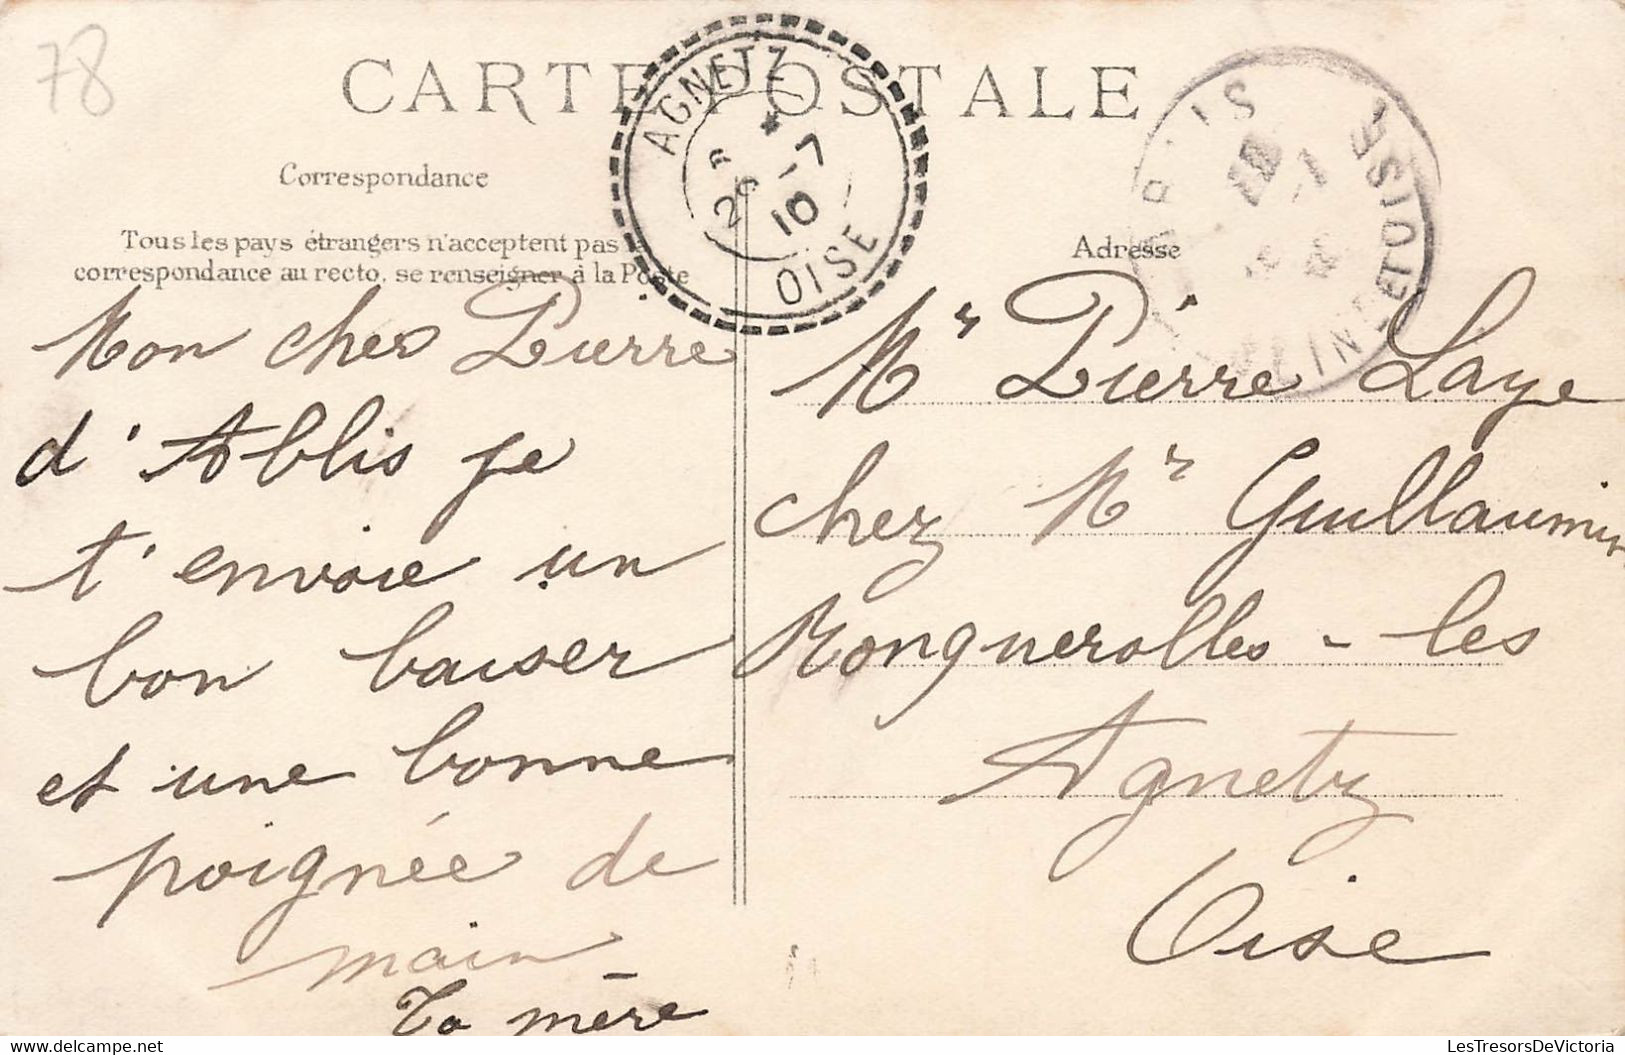 78
CARTE POSTALE
AGNETZ
26 -7
10
OISE
Correspondance
Tous les pays étrangers n'acceptent pas
correspondance au recto, se renseigner à la Poste
Mon cher Pierre
d'Ablis je
t'envoie un
bon baiser
et une bonne
poignée de
main -
Ta mère
SEINE ET OISE
Adresse
Mr Pierre Laye
chez Mr Guillaumin
Ronquerolles - les
Agnetz
Oise
LesTresorsDeVictoria
www.delcampe.net